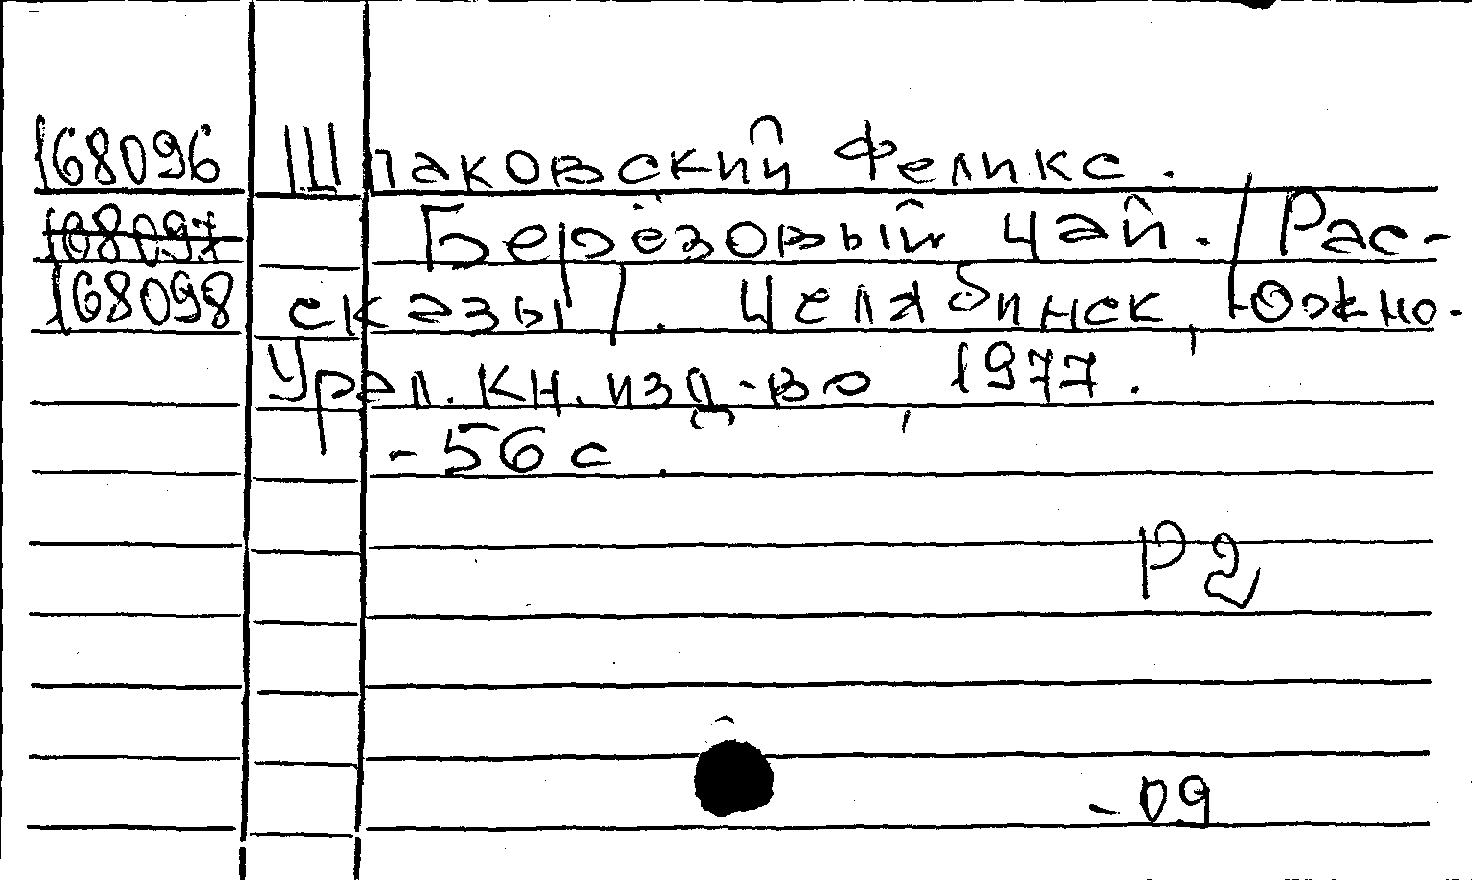 168096 Шпаковский Феликс.
168097 Берёзовый чай. /Рас-
168098 сказы/. Челябинск, Южно-
Урал. кн. изд-во, 1977.
- 56 с.
Р2
-09